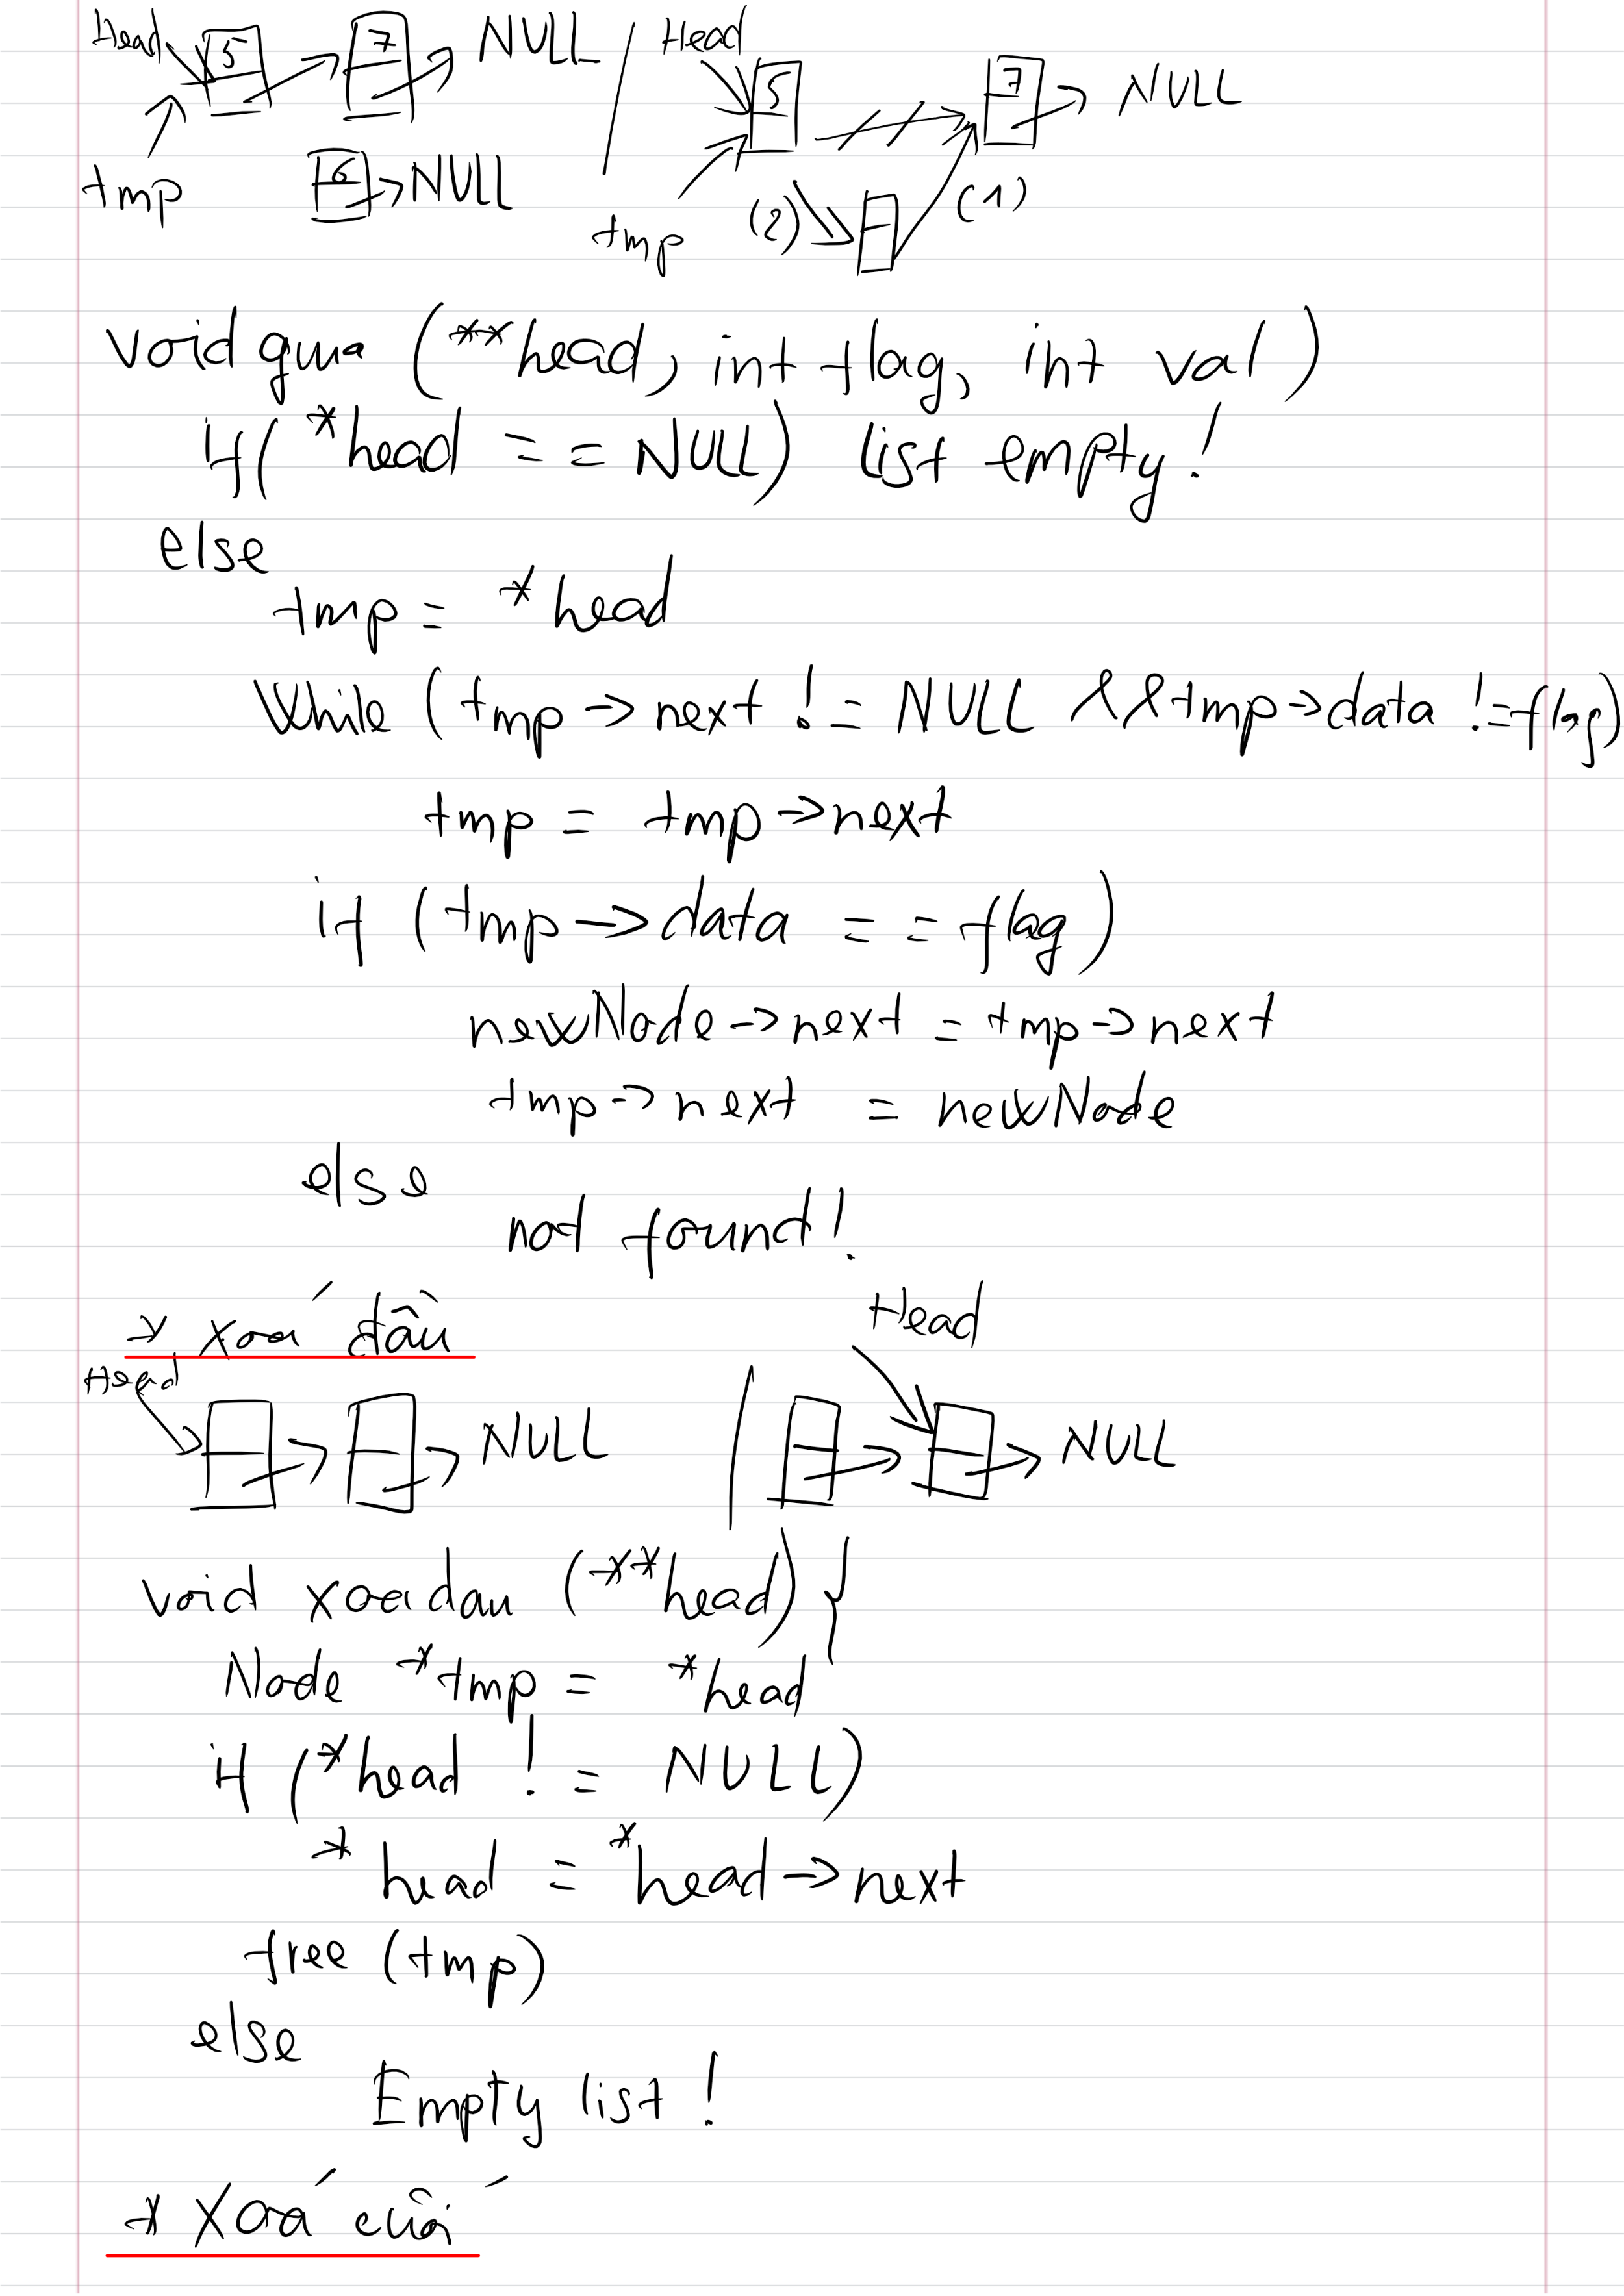 Head 5 7 NULL / Head 5 7 NULL
tmp 6 NULL tmp (2) (1)
void giua (**head, int flag, int val)
if (*head == NULL) list empty!
else
tmp = *head
While (tmp->next != NULL && tmp->data != flag)
tmp = tmp->next
if (tmp->data == flag)
newNode->next = tmp->next
tmp->next = newNode
else
not found!
* Xoá đầu
Head NULL Head NULL
void xoadau (**head) {
Node *tmp = *head
if (*head != NULL)
*head = *head->next
free (tmp)
else
Empty list!
* Xoá cuối